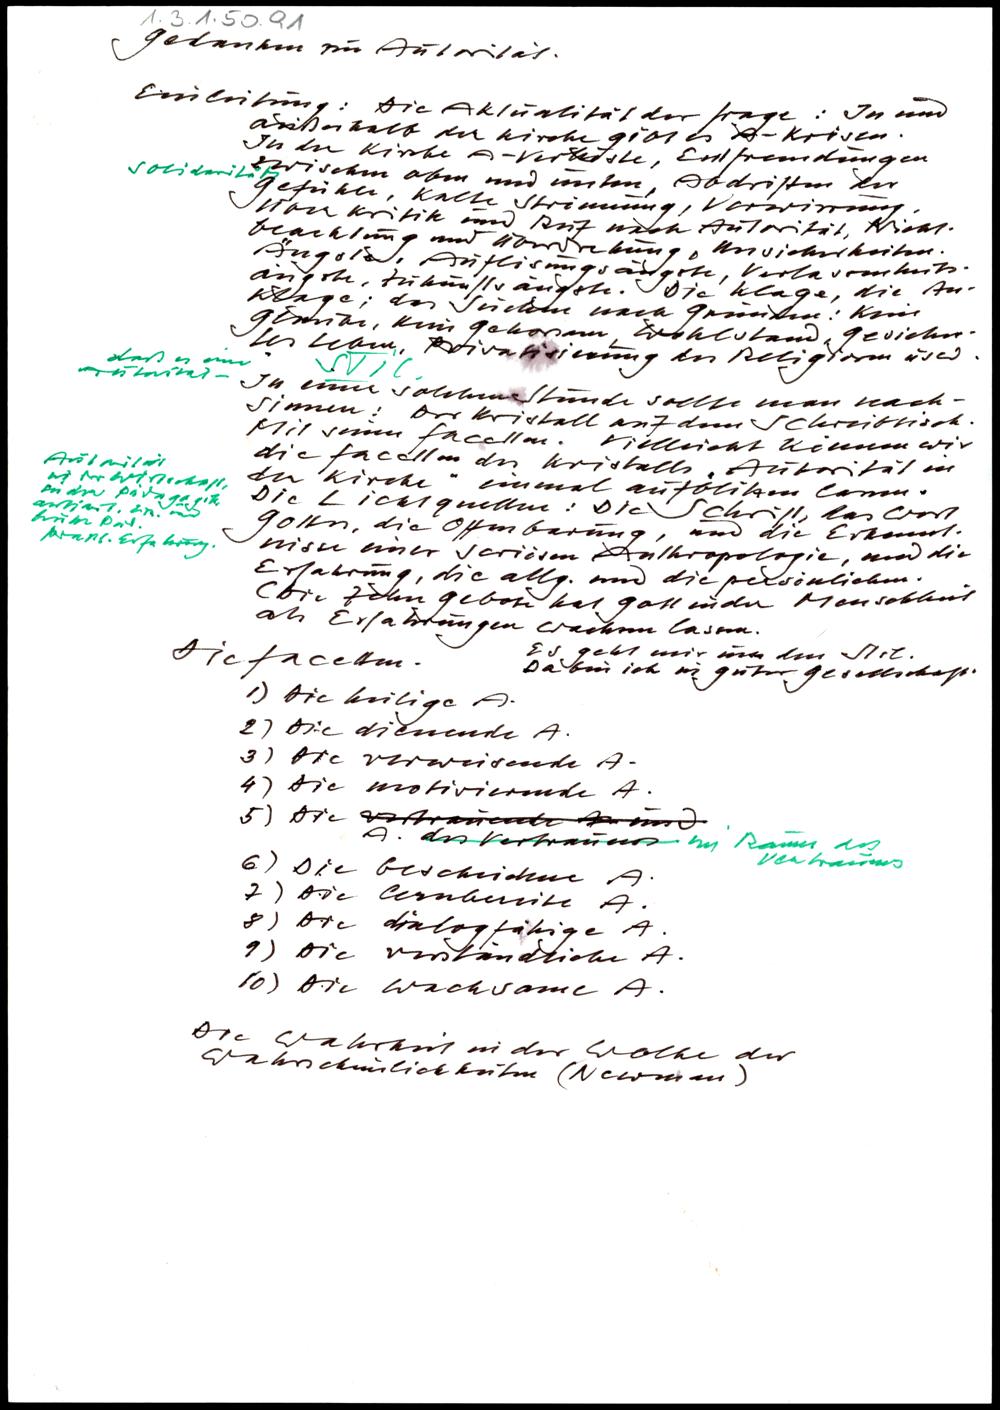 1.3.1.50.91
Gedanken zur Autorität.
Einleitung: Die Aktualität der Frage: In und
außerhalb der Kirche gibt es A-Krisen.
In der Kirche A-Verluste, Entfremdungen
Solidarität
zwischen oben und unten, Abdriften der
Gefühle, kalte Strömung, Verwirrung,
über Kritik und Ruf nach Autorität, Nicht-
beachtung und Überdrehung, Unsicherheiten.
Ängste, Auflösungsängste, Verlassenheits-
ängste, Zukunftsängste. Die Klage, die An-
klage; das Suchen nach Gründen: Kein
Glaube, kein Gehorsam, Wohlstand, gesicher-
tes Leben, Privatisierung der Religion usw.
daß es eine
Autorität-
Stil
In einer solchen Stunde sollte man nach-
sinnen: Der Kristall auf dem Schreibtisch.
Mit seinen Facetten. Vielleicht können wir
die Facetten des Kristalls "Autorität in
der Kirche" einmal aufblitzen lassen.
Autorität
in der Wirtschaft,
in der Pädagogik
antiaut. Erz. und
frühe Päd.
Erfahrung.
Die Lichtquellen: Die Schrift, das Wort
Gottes, die Offenbarung, und die Erkennt-
nisse einer seriösen Anthropologie, und die
Erfahrung, die allg. und die persönlichen.
(Die Zehn Gebote hat Gott in der Menschheit
als Erfahrungen wachsen lassen.
Es geht mir um den Stil.
Da bin ich in guter Gesellschaft.
Die Facetten.
1) Die heilige A.
2) Die dienende A.
3) Die verweisende A.
4) Die motivierende A.
5) Die vertrauende A. und
A. des Vertrauens im Raum des
Vertrauens
6) Die bescheidene A.
7) Die lernbereite A.
8) Die dialogfähige A.
9) Die verständliche A.
10) Die wachsame A.
Die Wahrheit in der Wolke der
Wahrscheinlichkeiten (Newman)